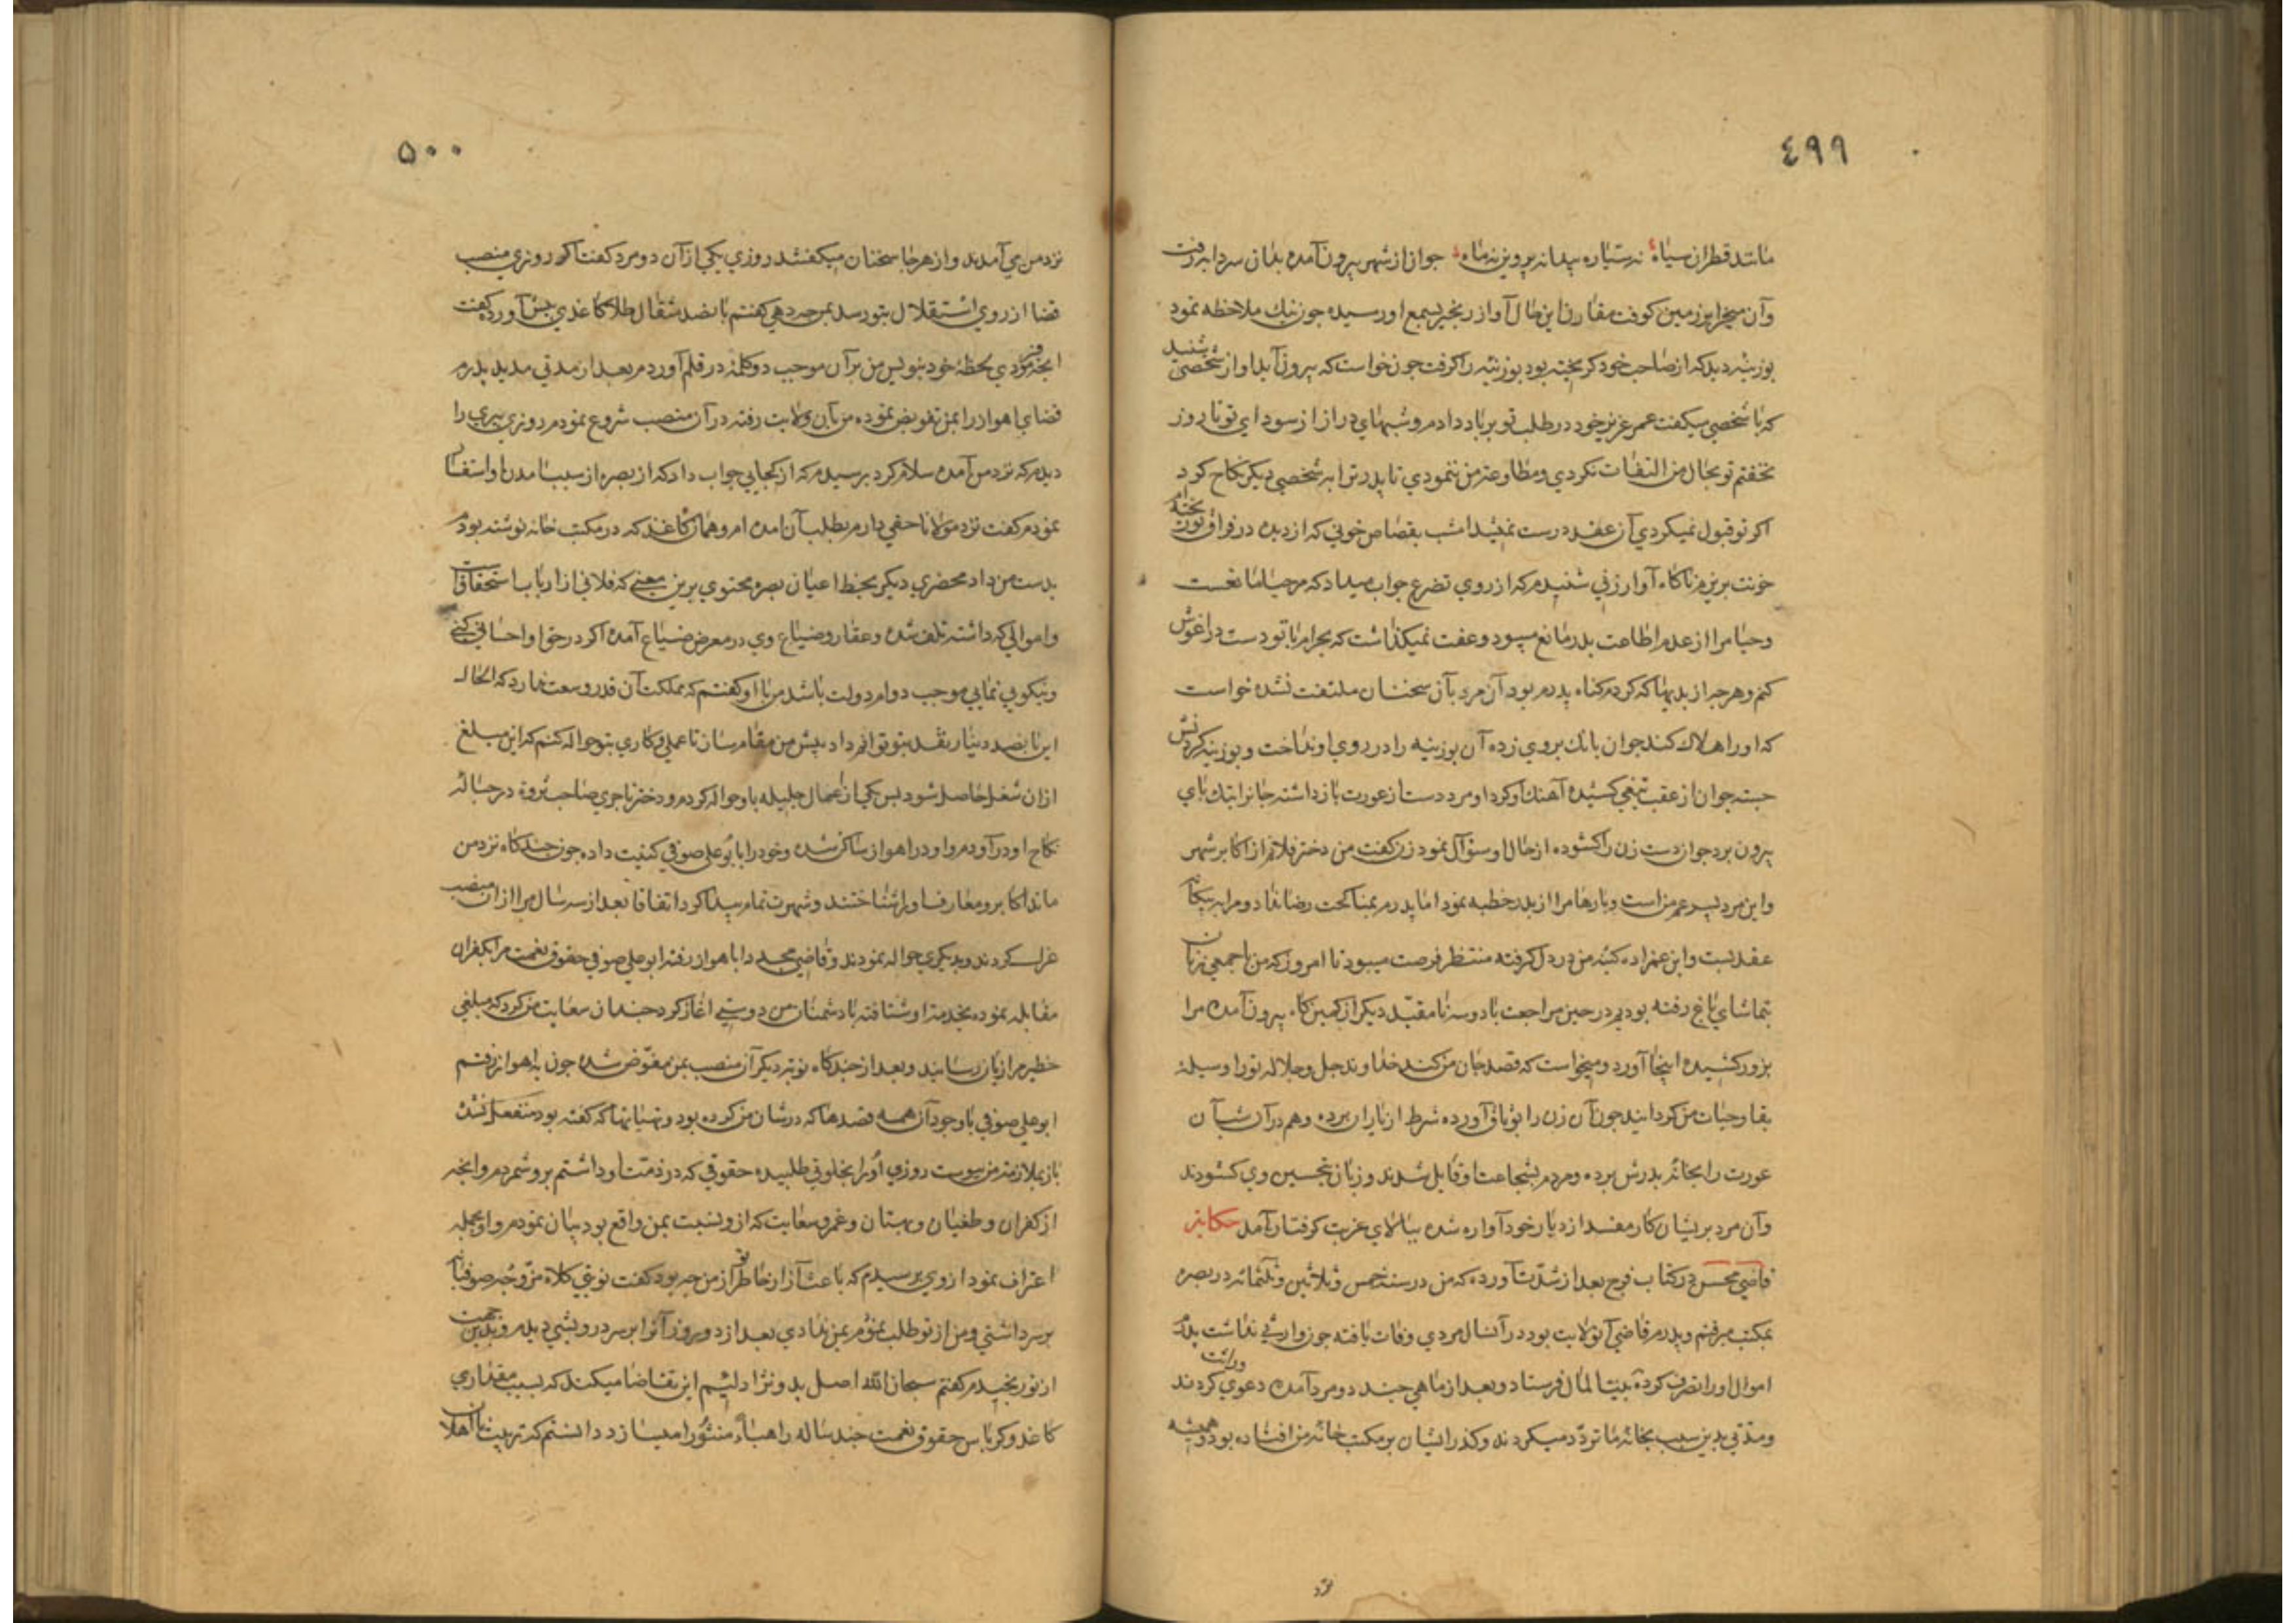 ٤٩٩
مانند قطران سیاه نه ستیاره پیدا نه پروین نه ماه جوان از شهر بیرون آمده بدان سردابه رفت
وآن میخ را بر زمین کوفت مقارن این حال آواز زنجیر بسمع او رسیده چون نیك ملاحظه نمود
بوزینه دید که از صاحب خود کریخته بود بوزینه را کرفت چون خواست که بیرون آید آواز شخصی شنید
که با شخصی میکفت عمر عزیز خود در طلب تو بر باد دادم وشبهای دراز از سودای تو تا روز
نخفتم تو بحال من التفات نکردی ومطاوعة من ننمودی تا پدر ترا بر شخصی دیکر نکاح کرد
اکر تو قبول نمیکردی آن عقد درست نمیشد امشب بقصاص خونی که از دیده در فراق تو ریخته ام
خونت بریزم ناکاه آواز زنی شنیدم که از روی تضرع جواب میداد که مرحبا اما نخست
وحیا مرا از عدم اطاعت پدر مانع میبود وعفت نمیکذاشت که بحرام با تو دست در اغوش
کنم وهر چه از بدیها که کردم کناه پدرم بود آن مرد بآن سخنان ملتفت نشده خواست
که اورا هلاك کند جوان بانك بروی زده آن بوزینه را در روی او انداخت وبوزینه کردنش
جسته جوان از عقب تیغی کشیده آهنك او کرد او مرد دست از عورت بازداشته جانرا بتك پای
بیرون برد جوان دست زن را کشوده از حال او سئوال نمود زن کفت من دختر فلانم از اکابر شهر
واین مرد پسر عم منست وبارها مرا از پدر خطبه نمود اما پدرم بمناکحت رضا نداد ومرا به بیکانه
عقد بست واین عمزاده کینه من در دل کرفته منتظر فرصت میبود تا امروز که من با جمعی زنان
بتماشای باغ رفته بودیم در حین مراجعت با دو سه نا مقید دیکر از کمین کاه بیرون آمده مرا
بزور کشیده اینجا آورد ومیخواست که قصد جان من کند خداوند جل وجلاله تورا وسیله
بقا وحیات من کردانید جوان آن زن را بوثاق آورده شرط از یاران برده وهم در آن شب آن
عورت را بخانه پدرش برده ومردم بشجاعت او قایل شدند وزبان بتحسین وی کشودند
وآن مرد پریشان کار مفسد از دیار خود آواره شده ببلای غربت کرفتار آمد حکایة
قاضی محسن در کتاب فرج بعد از شدت آورده که من در سنه خمس وثلاثین وثلثمائه در بصره
بمکتب میرفتم وپدرم قاضی آنولایت بود در آنسال مردی وفات یافته چون وارثی نداشت پدرم
اموال اورا تصرف کرده به بیت المال فرستاد وبعد از ماهی چند دو مرد آمده دعوی وراثت کردند
ومدتی بدین سبب بخانه ما تردد میکردند وکذر ایشان بر مکتب خانه من افتاده بود وهمیشه
۵۰۰
نزد من می آمدند واز هر جا سخنان میکفتند روزی یکی از آن دو مرد کفت اکر روزی منصب
قضا از روی استقلال بتو رسد بمن چه دهی کفتم پانصد مثقال طلا کاغذی پیش آورده کفت
انچه فرمودی بخط خود بنویس من بر آن موجب دو کلمه در قلم آوردم بعد از مدتی مدید پدرم
قضای اهواز را بمن تفویض نموده من بآن ولایت رفته در آن منصب شروع نمودم روزی پیری را
دیدم که نزد من آمده سلام کرد پرسیدم که از کجایی جواب داد که از بصره از سبب آمدن او استفسار
نمودم کفت نزد مولانا حقی دارم بطلب آن امده ام وهمان کاغذ که در مکتب خانه نوشته بودم
بدست من داد محضری دیکر بخط اعیان بصره محتوی برین معنی که فلانی از ارباب استحقاقست
واموالی که داشته تلف شده وعقار وضیاع وی در معرض ضیاع آمده اکر در حق او احسانی کنی
ونیکویی نمایی موجب دوام دولت باشد من با او کفتم که مملکت آن قدر وسعت ندارد که الحال
این پانصد دینار نقد بتو توانم داد پیش من مقام رسان تا عملی وکاری بتو حواله کنم که این مبلغ
ازان شغل حاصل شود پس یکی از اعمال جلیله باو حواله کردم ودختر تاجری صاحب ثروة در حباله
نکاح او در آوردم واو در اهواز ساکن شده وخود را بابو علی صوفی کنیت داده چون چندکاه نزد من
ماند اکابر ومعارف اورا شناختند وشهرت تمام پیدا کرد اتفاقا بعد از سه سال مرا از آن منصب
عزل کردند وبدیکری حواله نمودند وقاضی مجدد باهواز رفته ابو علی صوفی حقوق نعمت مرا بکفران
مقابله نموده بخدمت او شتافته با دشمنان من دوستی اغاز کرد چندان سعایت من کرد که مبلغی
خطیر مرا زیان رسانید وبعد از چندکاه نوبة دیکر آن منصب بمن مفوض شده چون به اهواز رفتم
ابو علی صوفی با وجود آن همه قصدها که در شان من کرده بود وبهتانها که کفته بود منفعل نشده
باز بملازمة من پیوست روزی اورا بخلوتی طلبیده حقوقی که در ذمت او داشتم بر وشمردم وانچه
از کفران وطغیان وبهتان وغمز وسعایت که از ونسبت بمن واقع بود بیان نمودم واو بجمله
اعتراف نمود از وی پرسیدم که باعث آزار خاطر تو از من چه بود کفت نوبتی کلاه مزوجه صوفیانه
بر سر داشتی ومن از تو طلب نمودم بمن ندادی بعد از دو روز آنرا بر سر درویشی دیدم وبدین جهت
از تو رنجیدم کفتم سبحان الله اصل بد ونژاد لئیم این تقاضا میکند که بسبب مقداری
کاغذ وکرباس حقوق نعمت چند ساله را هباء منثورا میسازد دانستم که تربیت نا اهلان